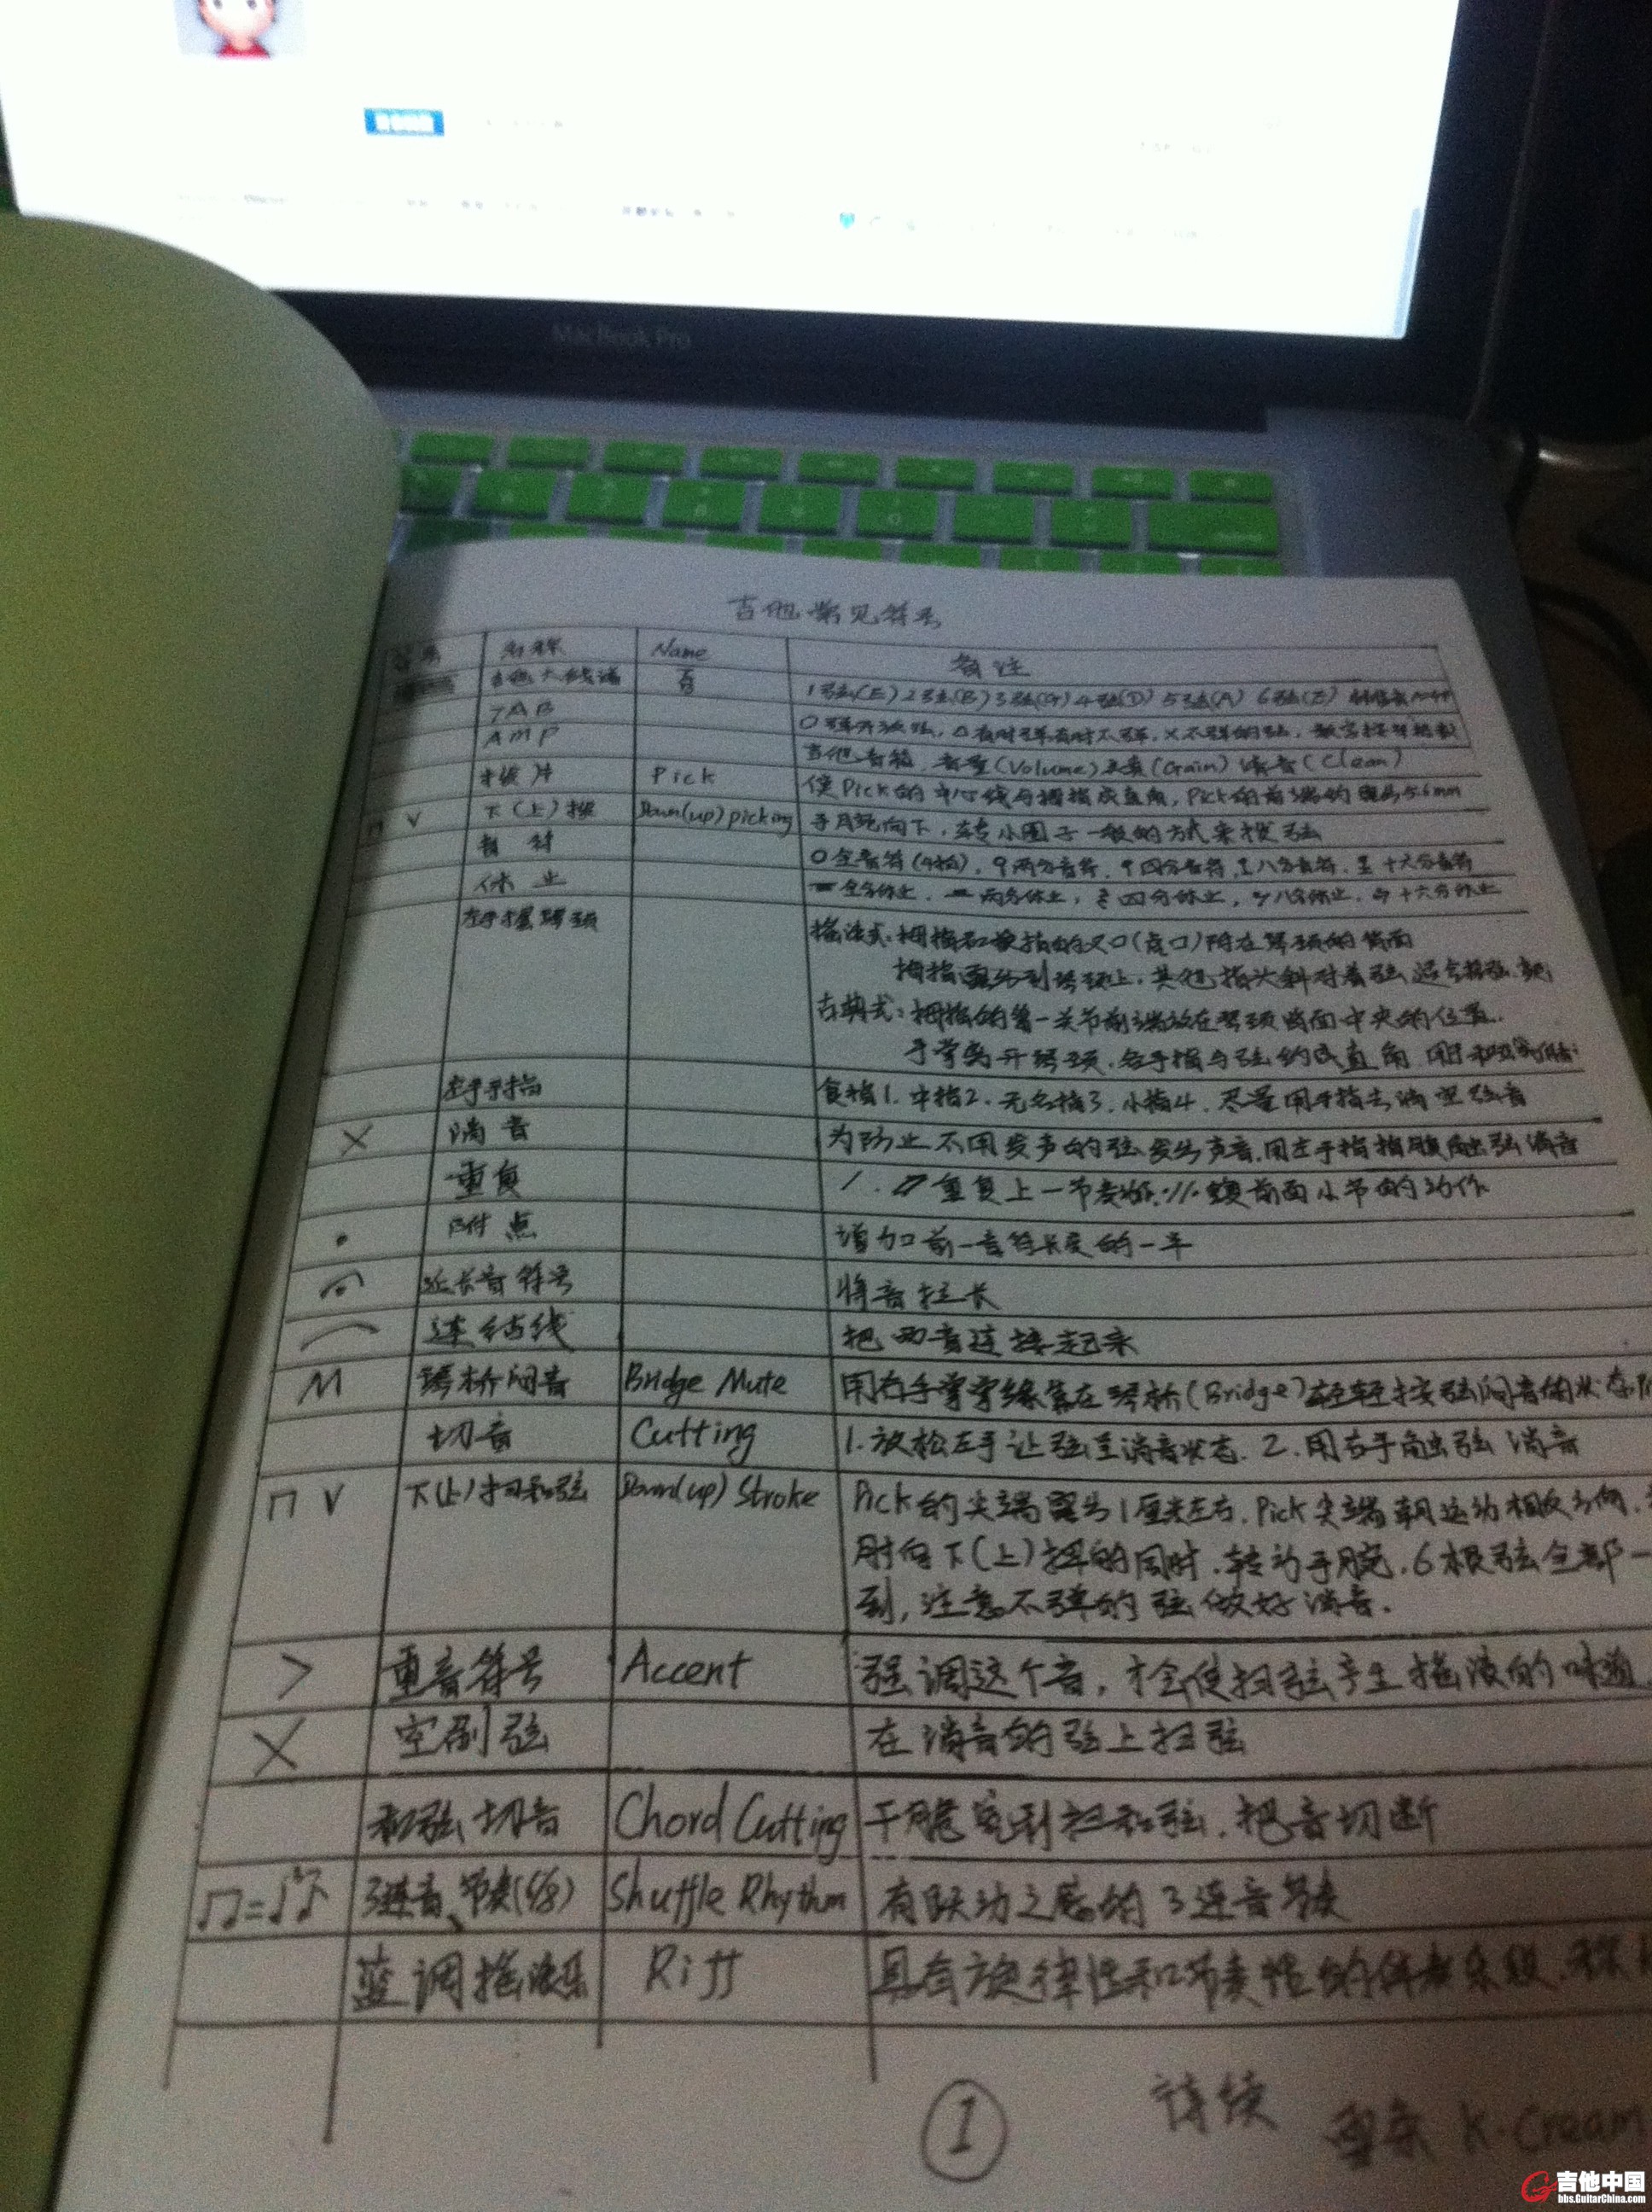 MacBook Pro
吉他常见符号
符号 名称 Name 备注
吉他六线谱 1弦(E) 2弦(B) 3弦(G) 4弦(D) 5弦(A) 6弦(E)
TAB 0弹开放弦, △有时弹有时不弹, ×不弹的弦, 数字
AMP 吉他音箱, 音量(Volume) (Gain) 清音(Clean)
拨片 Pick 使Pick的中心线与拇指成直角, Pick的前端约 5.6mm
⊓ V 下(上)拨 Down(up) picking 手腕向下, 转小圈子一般的方式来拨弦
音符 全音符(4拍), 两分音符, 四分音符, 八分音符, 十六分音符
休止 全分休止, 两分休止, 四分休止, 八分休止, 十六分休止
左手握琴颈 摇滚式: 拇指和食指的叉口(虎口)附在琴颈的背面
拇指 到琴颈上, 其他指头斜对着弦, 适合
古典式: 拇指的第一关节前端放在琴颈背面中央的位置.
手掌离开琴颈, 各手指与弦约成直角
左手手指 食指1. 中指2. 无名指3. 小指4. 尽量用手指去消空弦音
× 消音 为防止不用发声的弦发出声音, 用左手指指腹触弦消音
重复 重复上一节奏 前面小节的动作
· 附点 增加前一音符长度的一半
延长音符号 将音拉长
连结线 把两音连接起来
M 琴桥闷音 Bridge Mute 用右手掌掌缘靠在琴桥(Bridge)轻轻按弦闷音的状态
切音 Cutting 1. 放松左手让弦呈消音状态. 2. 用右手触弦消音
⊓ V 下(上)扫和弦 Down(up) Stroke Pick的尖端露出1厘米左右, Pick尖端朝运动相反方向,
肘向下(上)挥的同时, 转动手腕, 6根弦全部一
到, 注意不弹的弦做好消音.
> 重音符号 Accent 强调这个音, 才会使扫弦产生摇滚的味道
× 空刷弦 在消音的弦上扫弦
和弦切音 Chord Cutting 干脆 扫和弦, 把音切断
♫=♩♪ 3连音节奏 Shuffle Rhythm 有跃动之感的3连音节奏
蓝调摇滚乐 Riff 具有旋律性和节奏性的伴奏乐段,
① 待续 K·Cream
吉他中国
bbs.GuitarChina.com